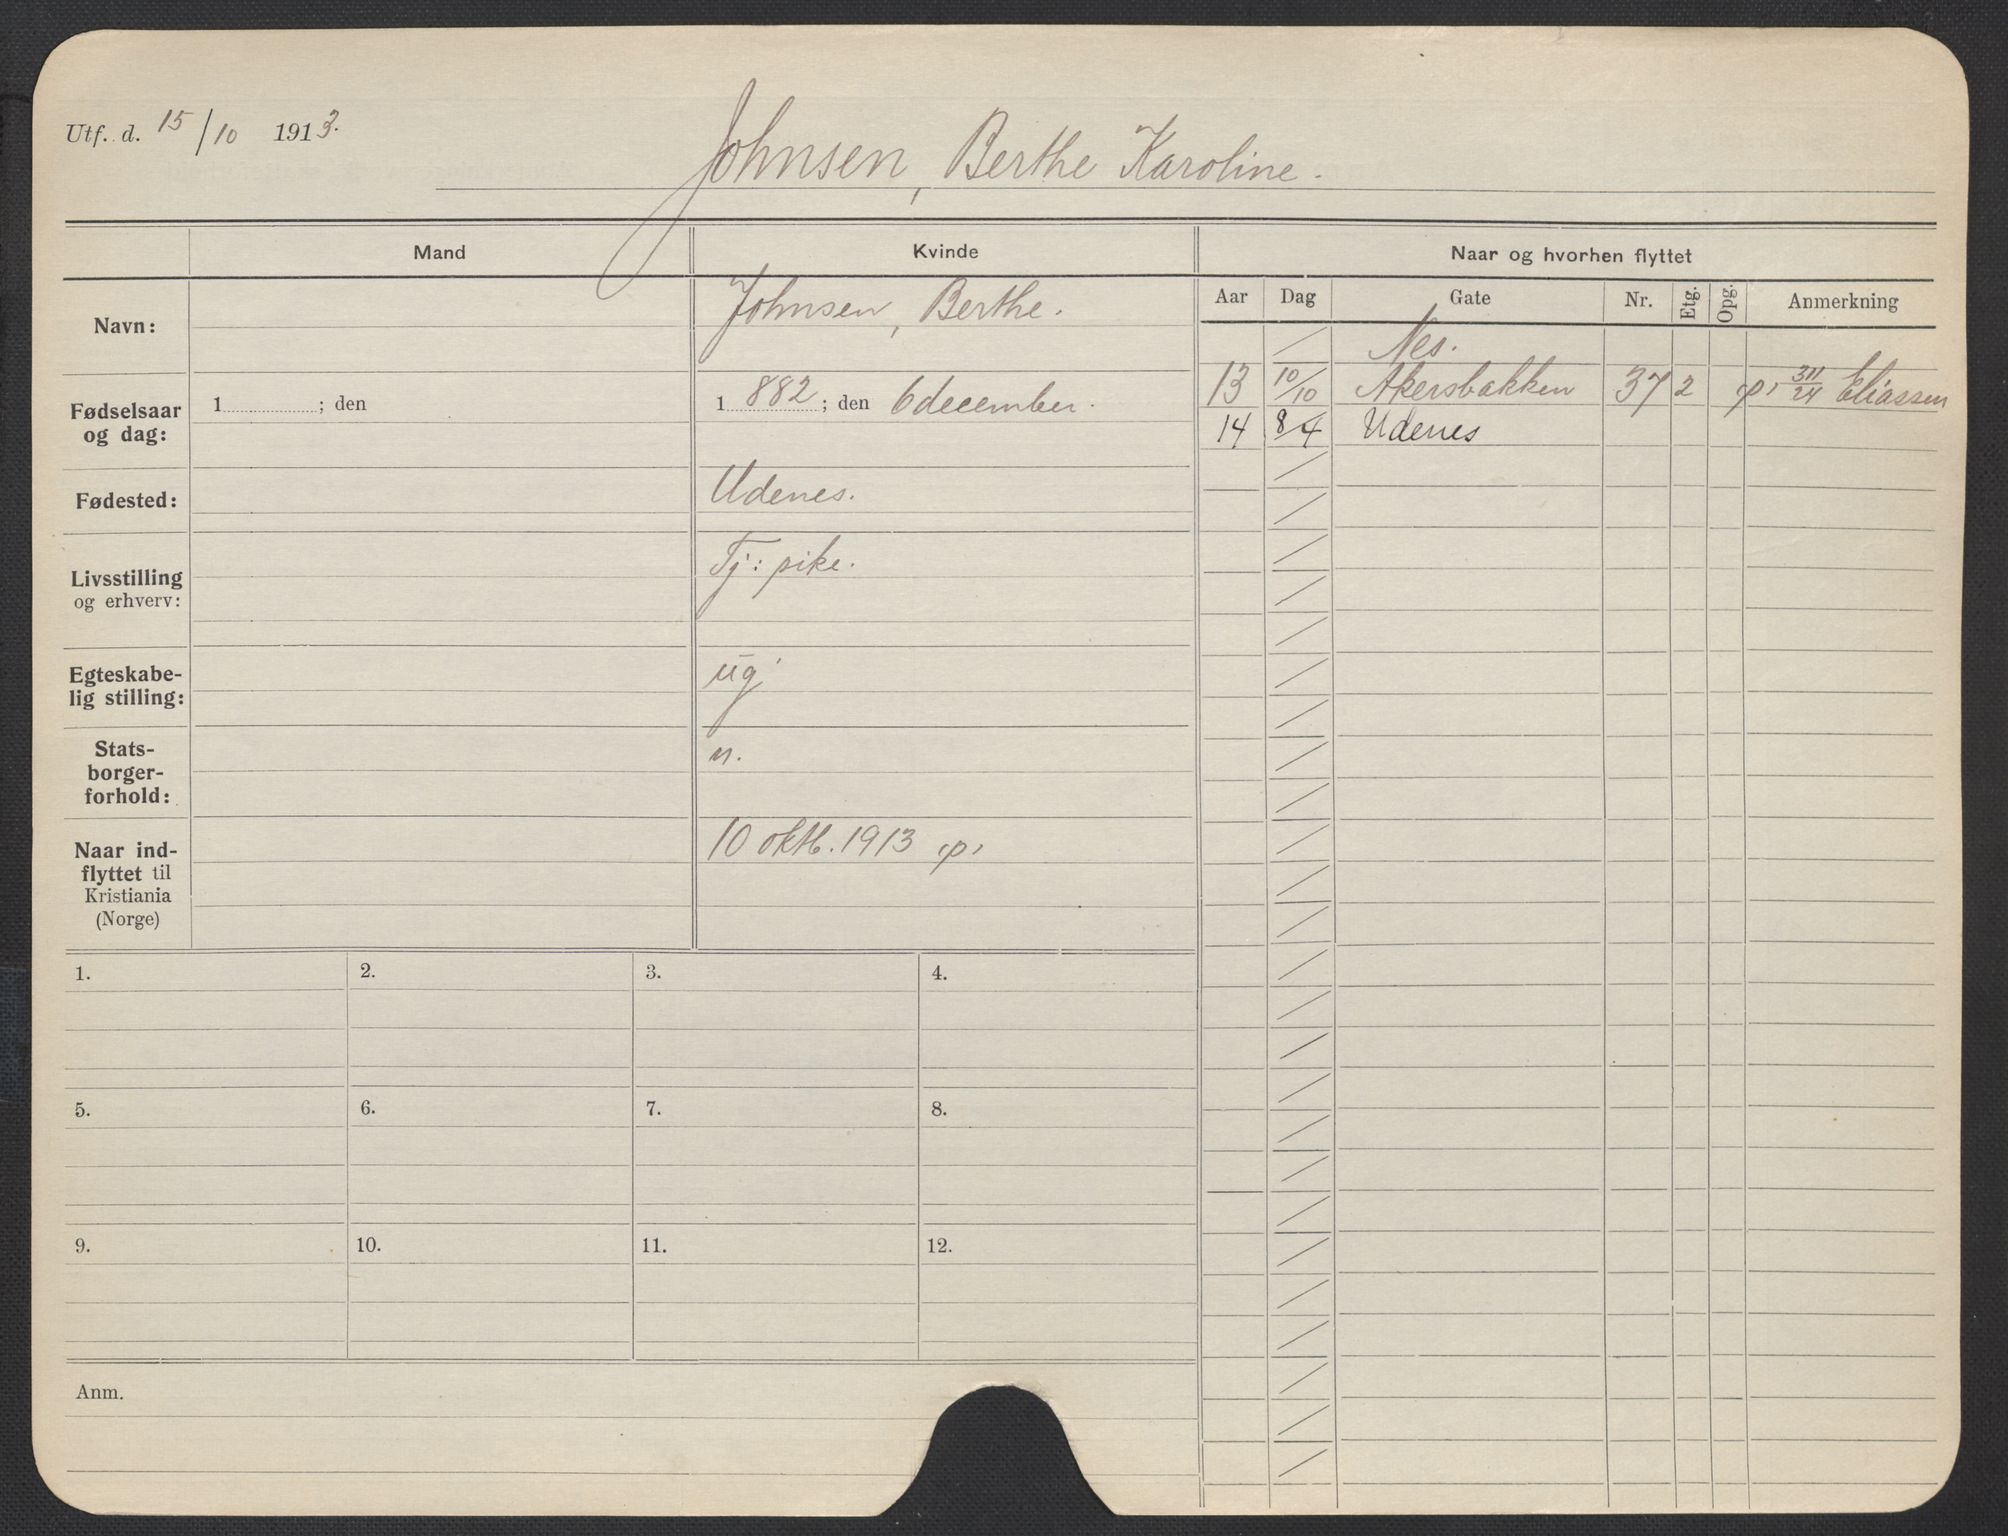 Utf. d. 15/10 1913.
Johnsen, Berthe Karoline.
Mand
Kvinde
Naar og hvorhen flyttet
Aar Dag Gate Nr. Etg. Opg. Anmerkning
Navn:
Johnsen, Berthe.
Fødselsaar
og dag:
1 ; den
1882; den 6 december.
Fødested:
Udenes.
Livsstilling
og erhverv:
Tj: pike.
Egteskabe-
lig stilling:
ug
Stats-
borger-
forhold:
n.
Naar ind-
flyttet til
Kristiania
(Norge)
10 oktb. 1913 p,
Nes.
13 10/10 Akersbakken 37 2 p, 311/24 Eliassen
14 8/4 Udenes
1. 2. 3. 4.
5. 6. 7. 8.
9. 10. 11. 12.
Anm.